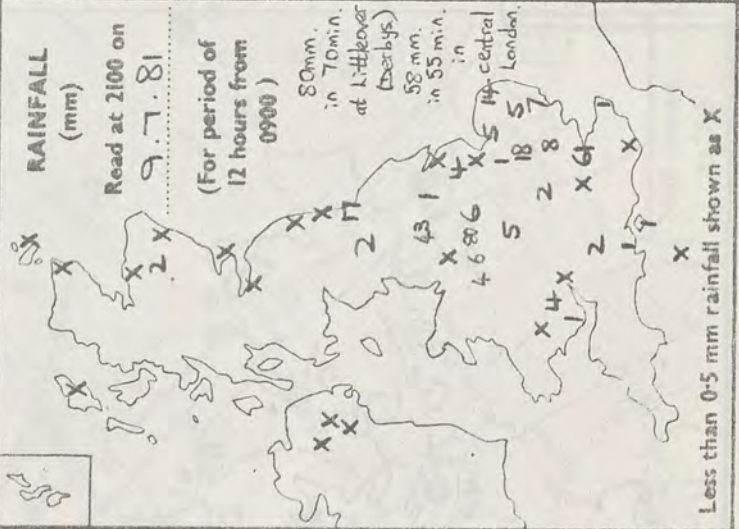 RAINFALL
(mm)
Read at 2100 on
9.7.81
(For period of
12 hours from
0900)
80mm.
in 70min.
at Littleover
(Derbys.)
58 mm.
in 55 min.
in
central
London.
X
X
X
X
2
X
X
X
X
X
X
X
X
X
17
2
43
1
X
X
4
X
4 6 80 6
1
5
14
5
5
7
18
8
2
X
61
1
X
X
4
1
X
2
1
9
X
Less than 0·5 mm rainfall shown as X